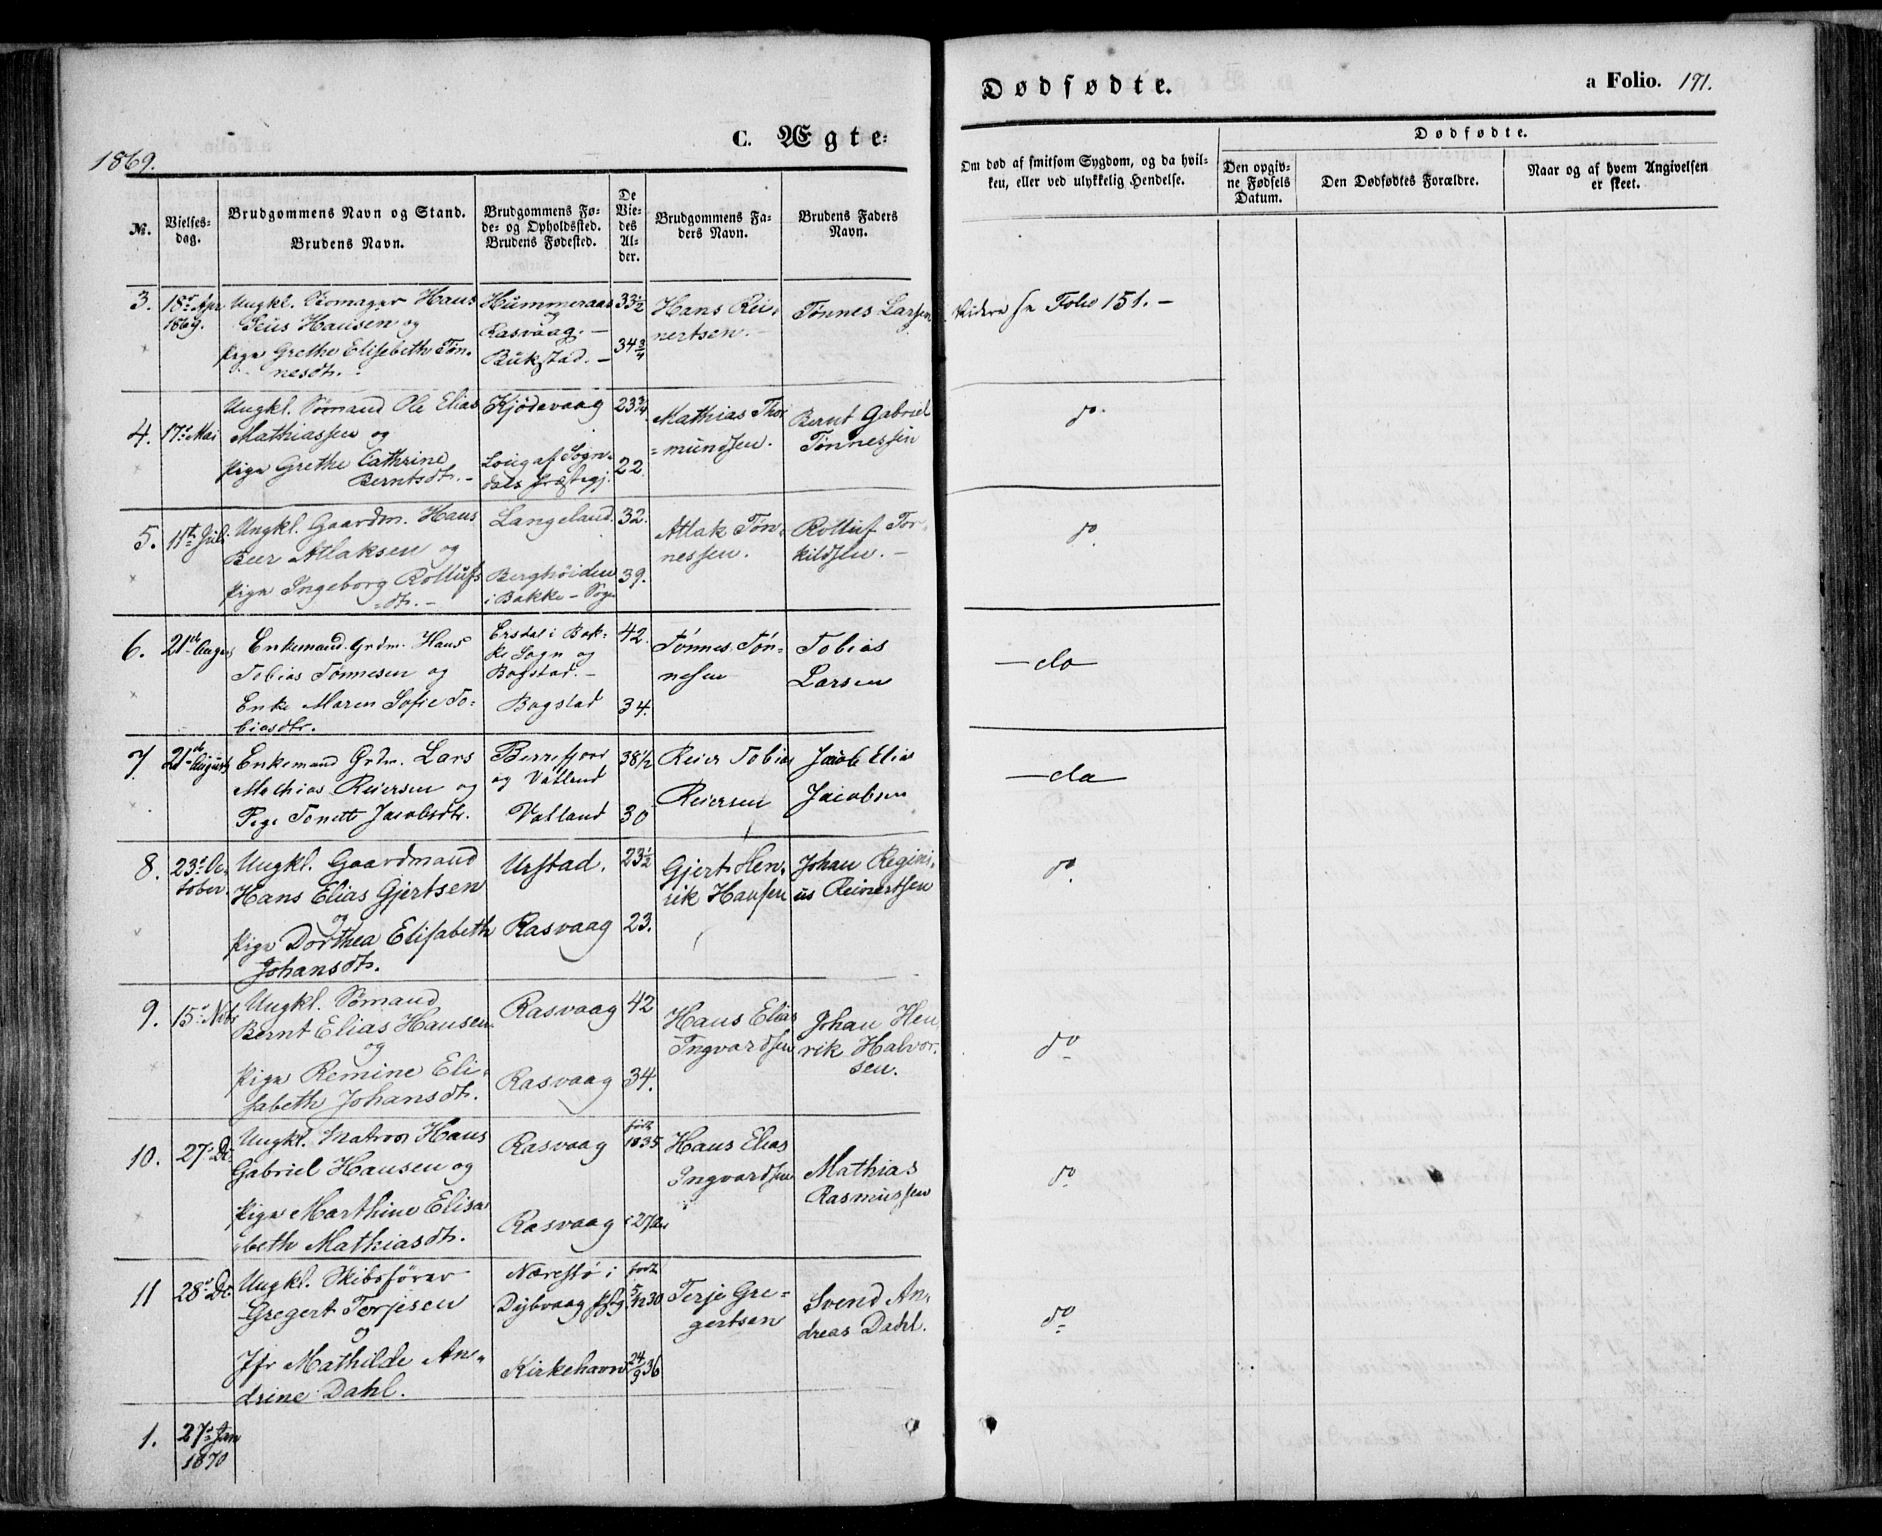 1869.
C. Ægte-
№.
Vielses-
dag.
Brudgommens Navn og Stand.
Brudens Navn.
Brudgommens Fø-
de- og Opholdssted.
Brudens Fødested.
De
Vie-
des
Al-
der.
Brudgommens Fa-
ders Navn.
Brudens Faders
Navn.
3.
18de Apr.
1869.
Ungkl. Hans
Seüs Hansen og
Pige Grethe Elisabeth Tøn-
nesdtr.
Hummeraas
og
Rasvaag.
Bükstad.
33½
34¾
Hans Rei-
nertsen.
Tønnes Larsen
4.
17de Mai
Ungkl. Sømand Ole Elias
Mathiassen og
Pige Grethe Cathrine
Berntsdtr.
Kjødevaag
Loug af Sogn-
dals Præstegj.
23¾
22.
Mathias Tho-
mundsen.
Bernt Gabriel
Tønnessen
5.
11te Juli
Ungkl. Gaardm. Hans
Beer Atlaksen og
Pige Ingeborg Rollufs
dtr.
Langeland.
Berghöiden
i Bakke - Sogn
32.
39.
Atlak Tøn-
nessen.
Rolluf Tor-
kildsen.
6.
21de August
Enkemand Grdm. Hans
Tobias Tønnesen og
Enke Maren Sofie To-
biasdtr.
Ersdal i Bak-
ke Sogn og
Bogstad.
Bogstad
42.
34.
Tønnes Tøn-
nesen
Tobias
Larsen
7
21de August
Enkemand Grdm. Lars
Mathias Reiersen og
Pige Tonette Jacobsdtr.
Berrefjord
og Vatland
Vatland
38½
30
Reier Tobias
Reiersen
Jacob Elias
Jacobsen
8.
23de Oc-
tober.
Ungkl. Gaardmand
Hans Elias Gjertsen
og
Pige Dorthea Elisabeth
Johansdtr.
Urstad.
Rasvaag
23½
23.
Gjert Hen-
rik Hansen
Johan Regini-
us Reinertsen
9.
15de Nvbr
Ungkl. Sømand
Bernt Elias Hansen
og
Pige Remine Eli-
sabeth Johansdtr.
Rasvaag
Rasvaag
42
34.
Hans Elias
Ingvardsen
Johan Hen-
rik Halvor-
sen.
10.
27de Dc
Ungkl. Matros Hans
Gabriel Hansen og
Pige Marthine Elisa-
beth Mathiasdtr.
Rasvaag
Rasvaag
født
1835
Hans Elias
Ingvardsen
Mathias
Rasmussen
11
28de Dc
Ungkl. Skibsfører
Gregert Terjesen
og
Jfr Mathilde An-
drine Dahl.
Nærestø i
Dybvaag Pstgj.
Kirkehavn
født
5/12 30
24/9 36
Terje Gre-
gertsen
Svend An-
dreas Dahl.
1.
27de Jan
1870
Dødfødte.
a Folio. 191.
Om død af smitsom Sygdom, og da hvil-
ken, eller ved ulykkelig Hendelse.
Dødfødte.
Den opgiv-
ne Fødsels
Datum.
Den Dødfødtes Forældre.
Naar og af hvem Angivelsen
er skeet.
Videre se Folio 151. -
do
do
do
do
do
do
do
do